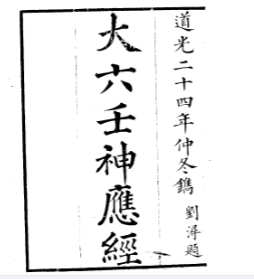 道光二十四年仲冬鐫 劉淠題
大六壬神應經